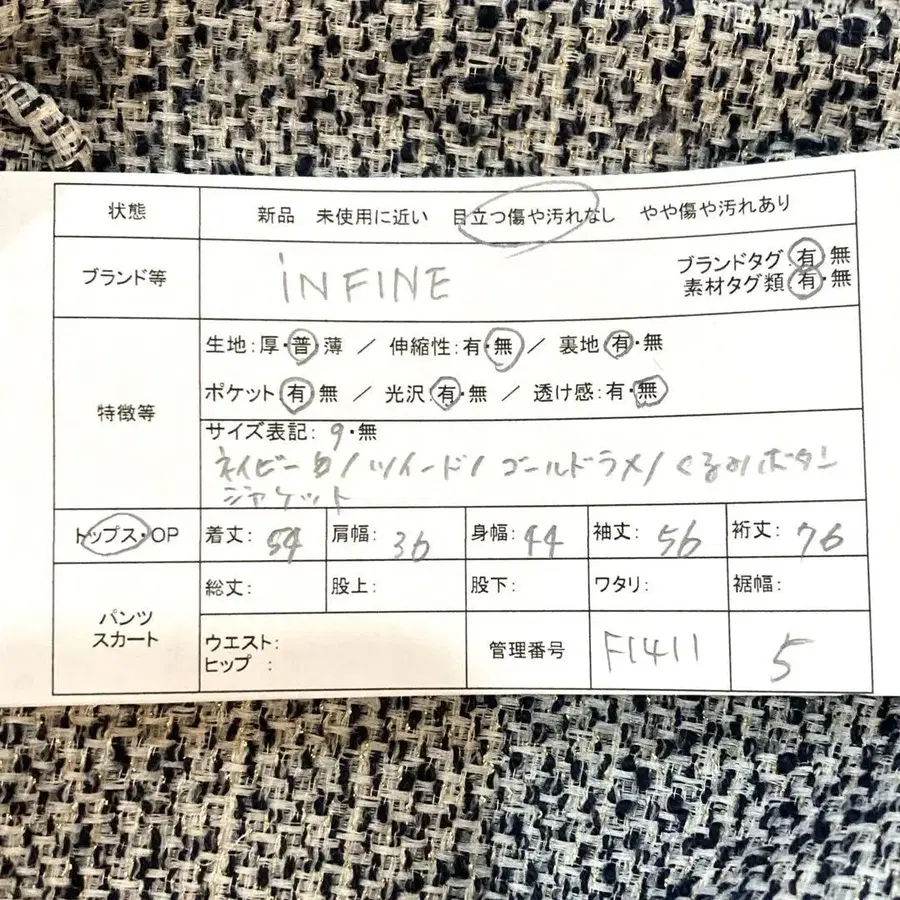 状態 新品 未使用に近い 目立つ傷や汚れなし やや傷や汚れあり
ブランド等 iNFINE ブランドタグ 有・無
素材タグ類 有・無
特徴等
生地:厚・普・薄 / 伸縮性:有・無 / 裏地 有・無
ポケット 有・無 / 光沢・有・無 / 透け感:有・無
サイズ表記: 9・無
ネイビー白/ツイード/ゴールドラメ/くるみボタン
ジャケット
トップス・OP 着丈: 54 肩幅: 36 身幅: 44 袖丈: 56 裄丈: 76
パンツ
スカート
総丈: 股上: 股下: ワタリ: 裾幅:
ウエスト:
ヒップ : 管理番号 F1411 5